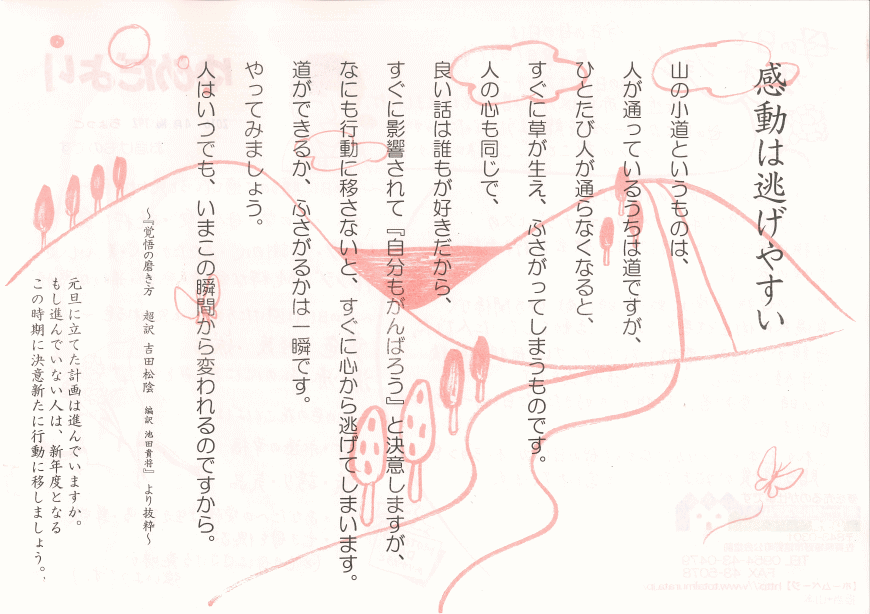 感動は逃げやすい
山の小道というものは、
人が通っているうちは道ですが、
ひとたび人が通らなくなると、
すぐに草が生え、ふさがってしまうものです。
人の心も同じで、
良い話は誰もが好きだから、
すぐに影響されて『自分もがんばろう』と決意しますが、
なにも行動に移さないと、すぐに心から逃げてしまいます。
道ができるか、ふさがるかは一瞬です。
やってみましょう。
人はいつでも、いまこの瞬間から変われるのですから。
～『覚悟の磨き方 超訳 吉田松陰 編訳 池田貴将』より抜粋～
元旦に立てた計画は進んでいますか。
もし進んでいない人は、新年度となる
この時期に決意新たに行動に移しましょう。